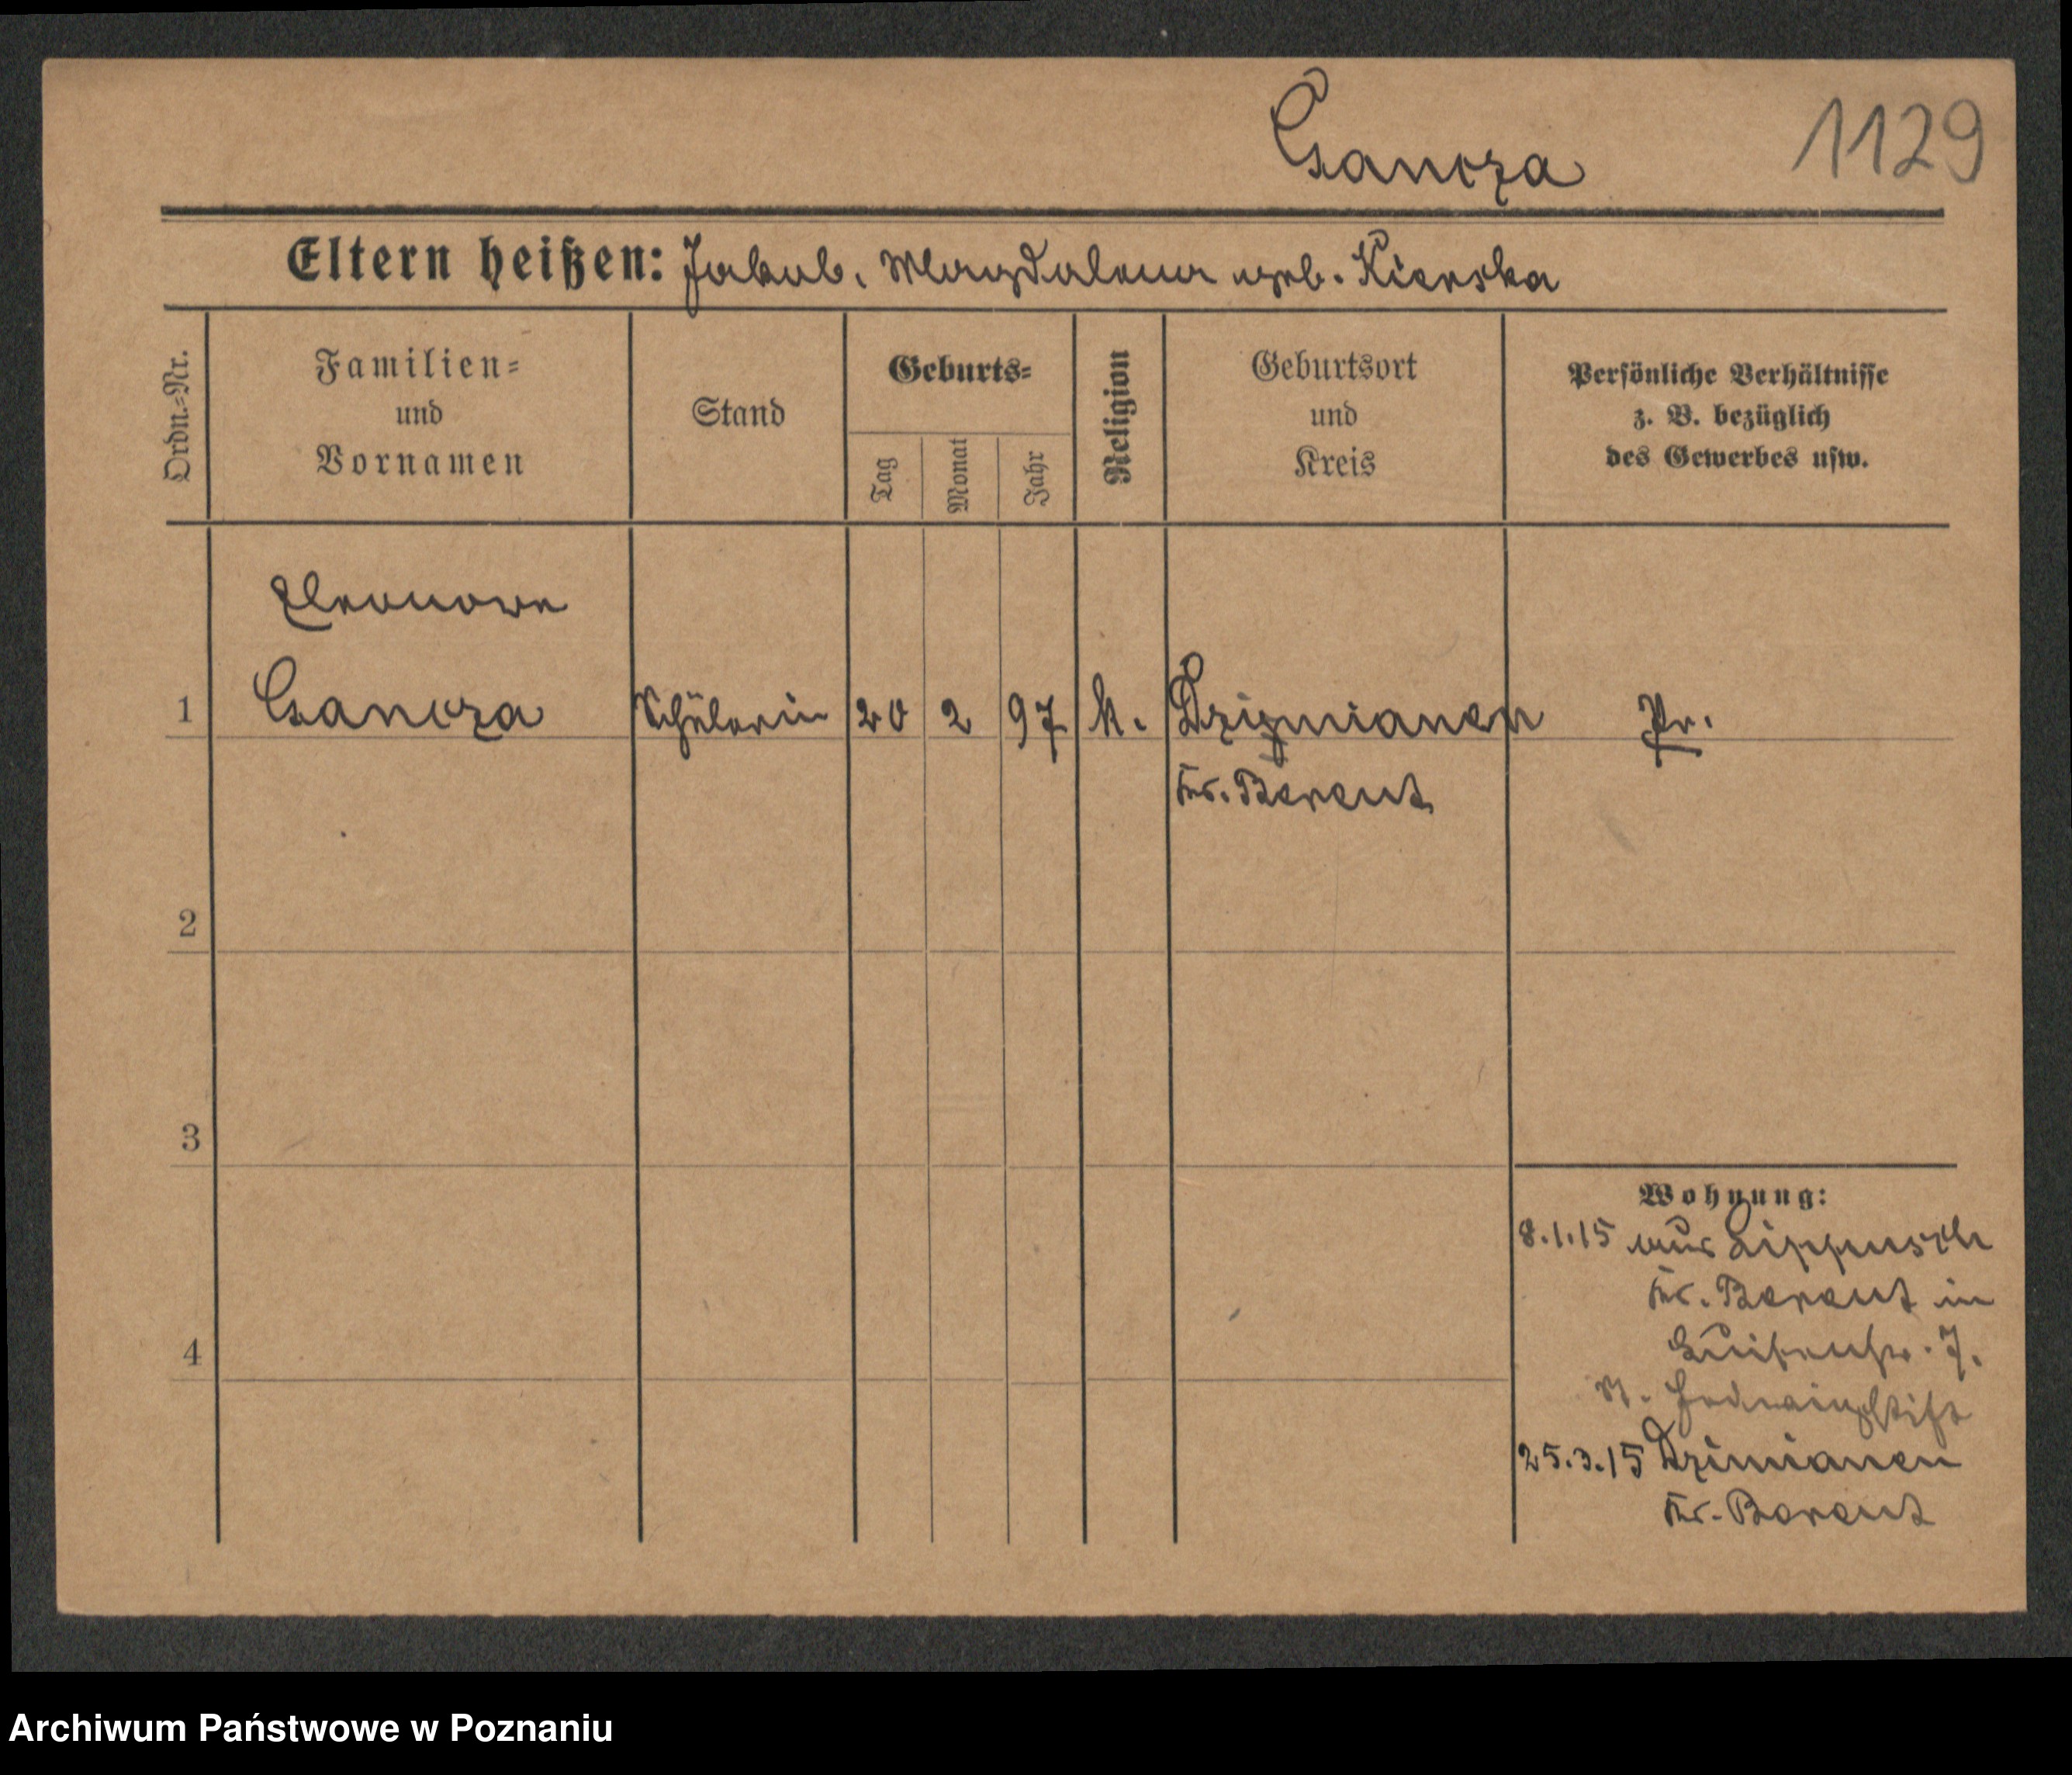 Czancza
1129
Eltern heißen: Jakob, Magdalena geb. Kierska
Ordn.-Nr.
Familien-
und
Vornamen
Stand
Geburts-
Tag
Monat
Jahr
Religion
Geburtsort
und
Kreis
Persönliche Verhältnisse
z. B. bezüglich
des Gewerbes usw.
Eleonore
1 Czancza Schülerin 20 2 97 k. Dzimianen Pr.
Kr. Berent
2
3
Wohnung:
8.1.15 aus Lippusch
Kr. Berent in
4
Luisenstr. 7.
St. Hedwigstift
25.3.15 Dzimianen
Kr. Berent
Archiwum Państwowe w Poznaniu